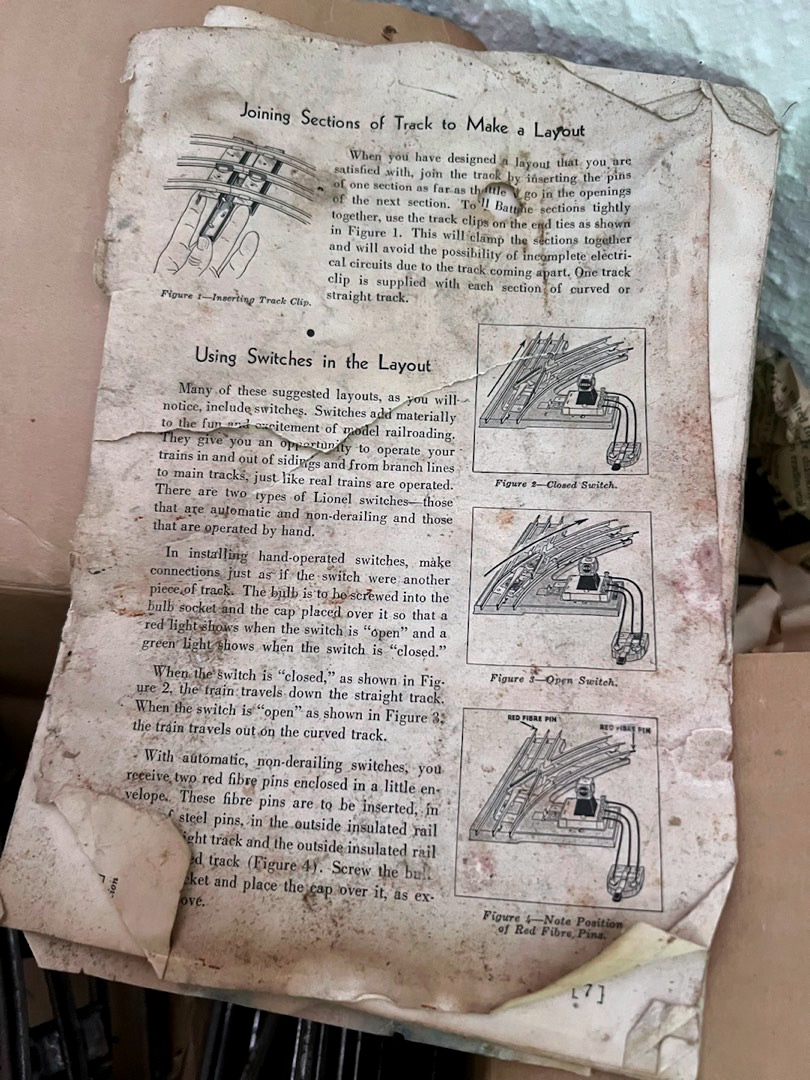 Joining Sections of Track to Make a Layout
When you have designed a layout that you are
satisfied with, join the track by inserting the pins
of one section as far as go in the openings
of the next section. To sections tightly
together, use the track clips on the end ties as shown
in Figure 1. This will clamp the sections together
and will avoid the possibility of incomplete electri-
cal circuits due to the track coming apart. One track
clip is supplied with each section of curved or
straight track.
Figure 1—Inserting Track Clip.
Using Switches in the Layout
Many of these suggested layouts, as you will
notice, include switches. Switches add materially
to the fun and excitement of model railroading.
They give you an opportunity to operate your
trains in and out of sidings and from branch lines
to main tracks, just like real trains are operated.
There are two types of Lionel switches—those
that are automatic and non-derailing and those
that are operated by hand.
In installing hand-operated switches, make
connections just as if the switch were another
piece of track. The bulb is to be screwed into the
bulb socket and the cap placed over it so that a
red light shows when the switch is "open" and a
green light shows when the switch is "closed."
When the switch is "closed," as shown in Fig-
ure 2, the train travels down the straight track.
When the switch is "open" as shown in Figure 3,
the train travels out on the curved track.
With automatic, non-derailing switches, you
receive two red fibre pins enclosed in a little en-
velope. These fibre pins are to be inserted, in
steel pins, in the outside insulated rail
ght track and the outside insulated rail
ed track (Figure 4). Screw the bulb
cket and place the cap over it, as ex-
ove.
Figure 2—Closed Switch.
Figure 3—Open Switch.
RED FIBRE PIN
RED FIBRE PIN
Figure 4—Note Position
of Red Fibre Pins.
[7]